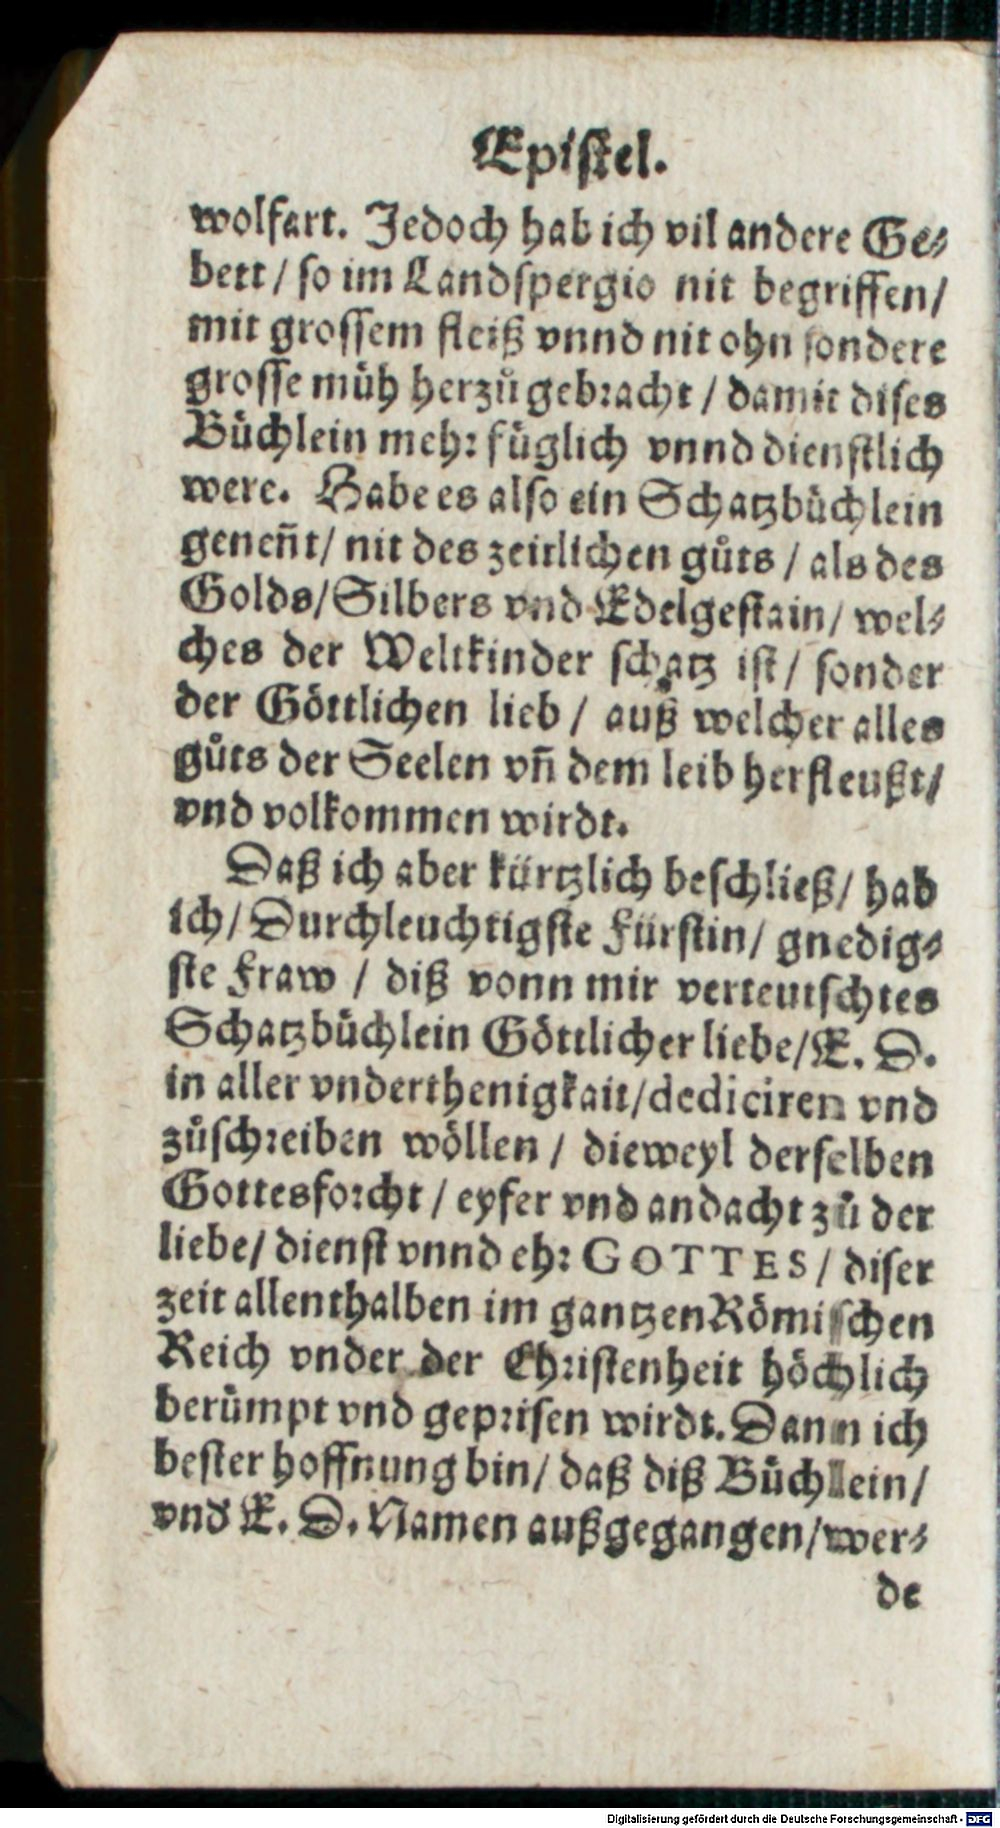 Epistel.
wolfart. Jedoch hab ich vil andere Ge-
bett / so im Landspergio nit begriffen /
mit grossem fleiß vnnd nit ohn sondere
grosse müh herzů gebracht / damit dises
Büchlein mehr füglich vnnd dienstlich
were. Habe es also ein Schatzbüchlein
geneñt / nit des zeitlichen gůts / als des
Golds / Silbers vnd Edelgestain / wel-
ches der Weltkinder schatz ist / sonder
der Göttlichen lieb / auß welcher alles
gůts der Seelen vñ dem leib herfleußt /
vnd volkommen wirdt.
Daß ich aber kürtzlich beschließ / hab
ich / Durchleuchtigste Fürstin / gnedig-
ste Fraw / diß vonn mir verteutschtes
Schatzbüchlein Göttlicher liebe / E. D.
in aller vnderthenigkait / dediciren vnd
zůschreiben wöllen / dieweyl derselben
Gottesforcht / eyfer vnd andacht zů der
liebe / dienst vnnd ehr GOTTES / diser
zeit allenthalben im gantzen Römischen
Reich vnder der Christenheit höchlich
berümpt vnd geprisen wirdt. Dann ich
bester hoffnung bin / daß diß Büchlein /
vnd E. D. Namen außgegangen / wer-
de
Digitalisierung gefördert durch die Deutsche Forschungsgemeinschaft - DFG